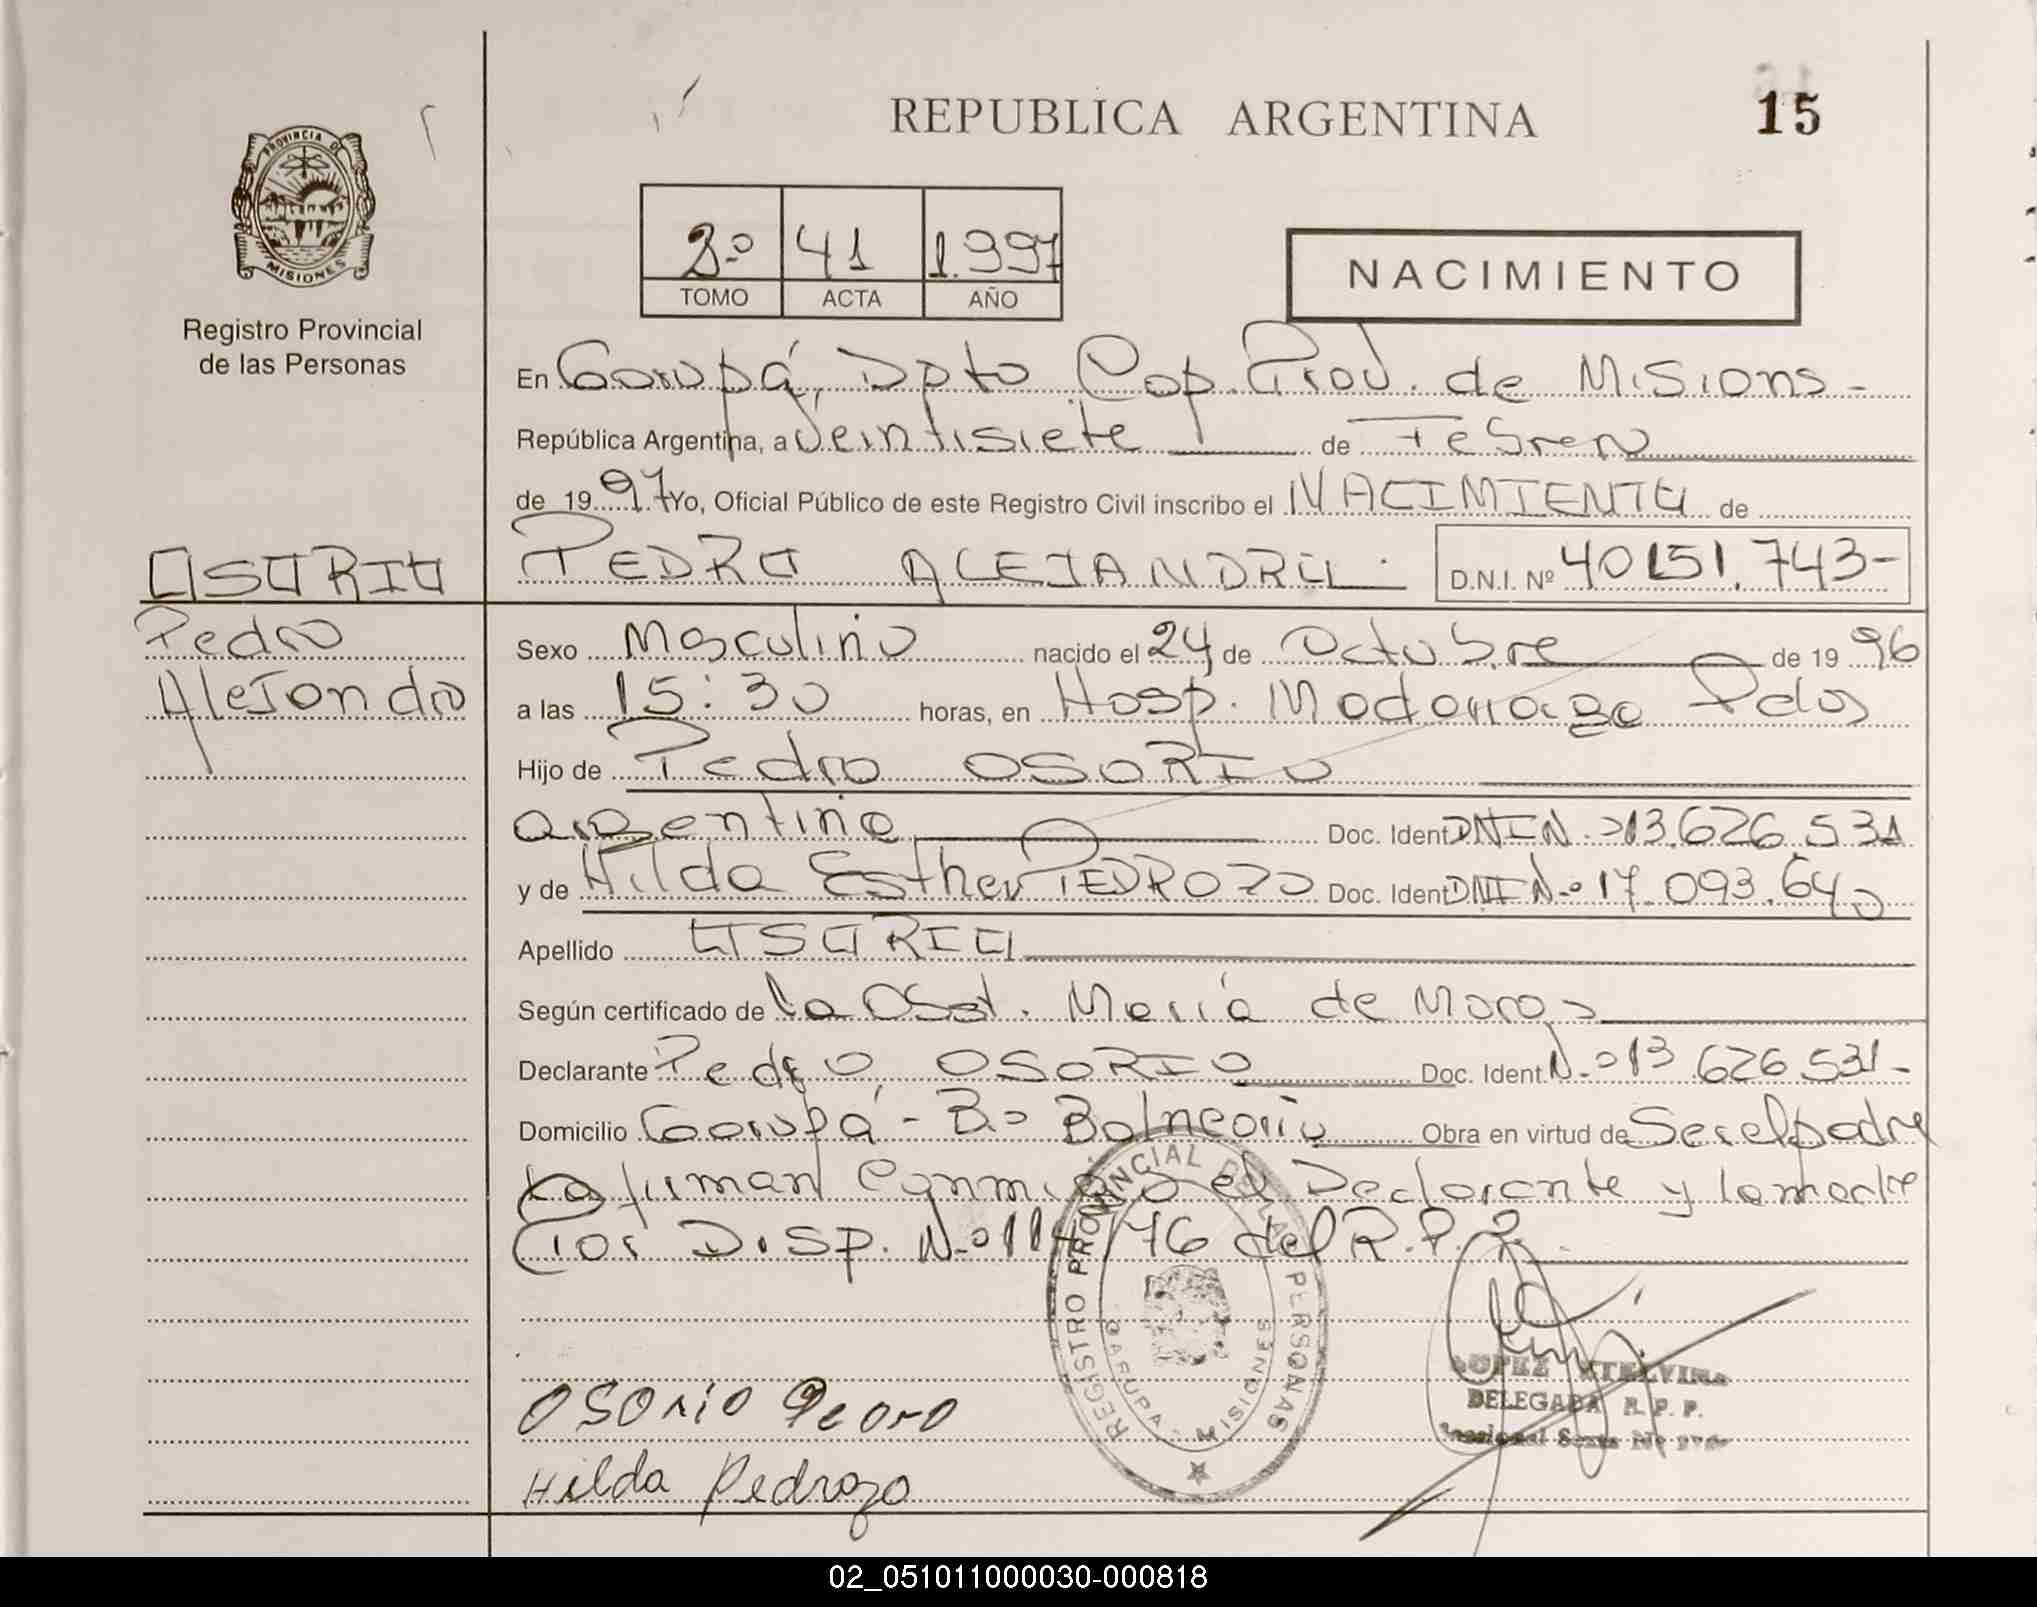 15
REPUBLICA ARGENTINA
PROVINCIA D
MISIONES
Registro Provincial
de las Personas
2º 41 1.997
TOMO ACTA AÑO
NACIMIENTO
En Garupá, Dpto Cap. Prov. de Misions -
República Argentina, a veintisiete de Febrero
de 19 97 Yo, Oficial Público de este Registro Civil inscribo el NACIMIENTO de
OSORIO PEDRO ALEJANDRO. D.N.I. Nº 40151.743-
Pedro
Alejandro
Sexo Masculino nacido el 24 de Octubre de 19 96
a las 15:30 horas, en Hosp. Madariaga Pdas
Hijo de Pedro OSORIO
argentino Doc. Ident DNI Nº 13.626.531
y de Hilda Esther PEDROZO Doc. Ident DNI Nº 17.093.640
Apellido OSORIO
Según certificado de la Obst. María de Moro
Declarante Pedro OSORIO Doc. Ident. Nº 13 626 531-
Domicilio Garupá - Bº Balneario Obra en virtud de Ser el padre
firman conmigo el Declarante y la madre
Por Disp. Nº 114/76 del R.P.P.
REGISTRO PROVINCIAL DE LAS PERSONAS
GARUPA - MISIONES
LOPEZ ETELVINA
DELEGADA R. P. P.
OSORIO Pedro
Hilda Pedrozo
02_051011000030-000818